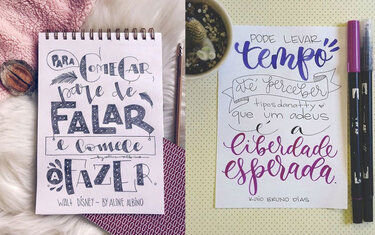 PARA
COMEÇAR
pare de
FALAR
e comece
A FAZER.
WALT DISNEY - BY ALINE ALBINO
PODE LEVAR
tempo
até perceber
tiposdanatty
que um adeus
é a
liberdade
esperada.
KAIO BRUNO DIAS